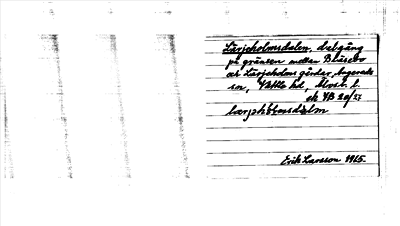 Lärjeholmsdalen, dalgång
på gränsen mellan Blåsebo
och Lärjeholms gårdar, Angereds
sn, Vättle hd, Älvsb. l.
ek 7B 2e/27
Erik Larsson 1965